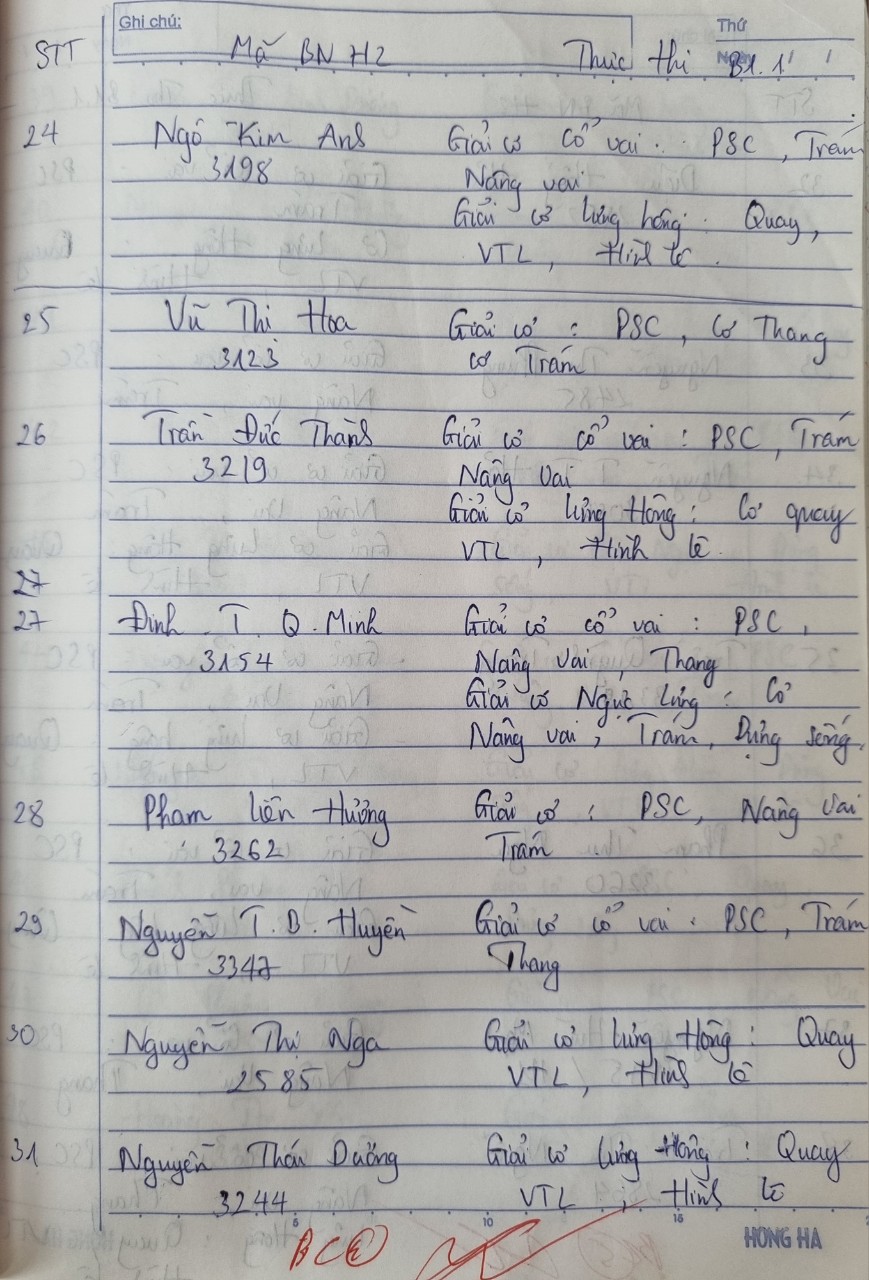 Ghi chú:
Thứ
STT Mã BN H2 Thực thi B1.1
24 Ngô Kim Ans Giải cơ cổ vai: PSC, Trám
3198 Nâng vai
Giải cơ lưng hông: Quay,
VTL, Hình lê.
25 Vũ Thị Hoa Giải cơ: PSC, Cơ Thang
3123 cơ Trám
26 Trần Đức Thans Giải cơ cổ vai: PSC, Trám
3219 Nâng vai
Giải cơ lưng Hông: Cơ quay
VTL, Hình lê.
27
27 Đinh T. Q. Minh Giải cơ cổ vai: PSC,
3154 Nâng vai, Thang
Giải cơ Ngực Lưng: Cơ
Nâng vai, Trám, Dựng sống,
28 Phạm Liên Hương Giải cơ: PSC, Nâng vai
3262 Trám
29 Nguyễn T. B. Huyền Giải cơ cổ vai: PSC, Trám
3347 Thang
30 Nguyễn Thị Nga Giải cơ lưng Hông: Quay
2585 VTL, Hình lê
31 Nguyễn Thái Dương Giải cơ lưng Hông: Quay
3244 VTL, Hình lê
5 10 15
HONG HA